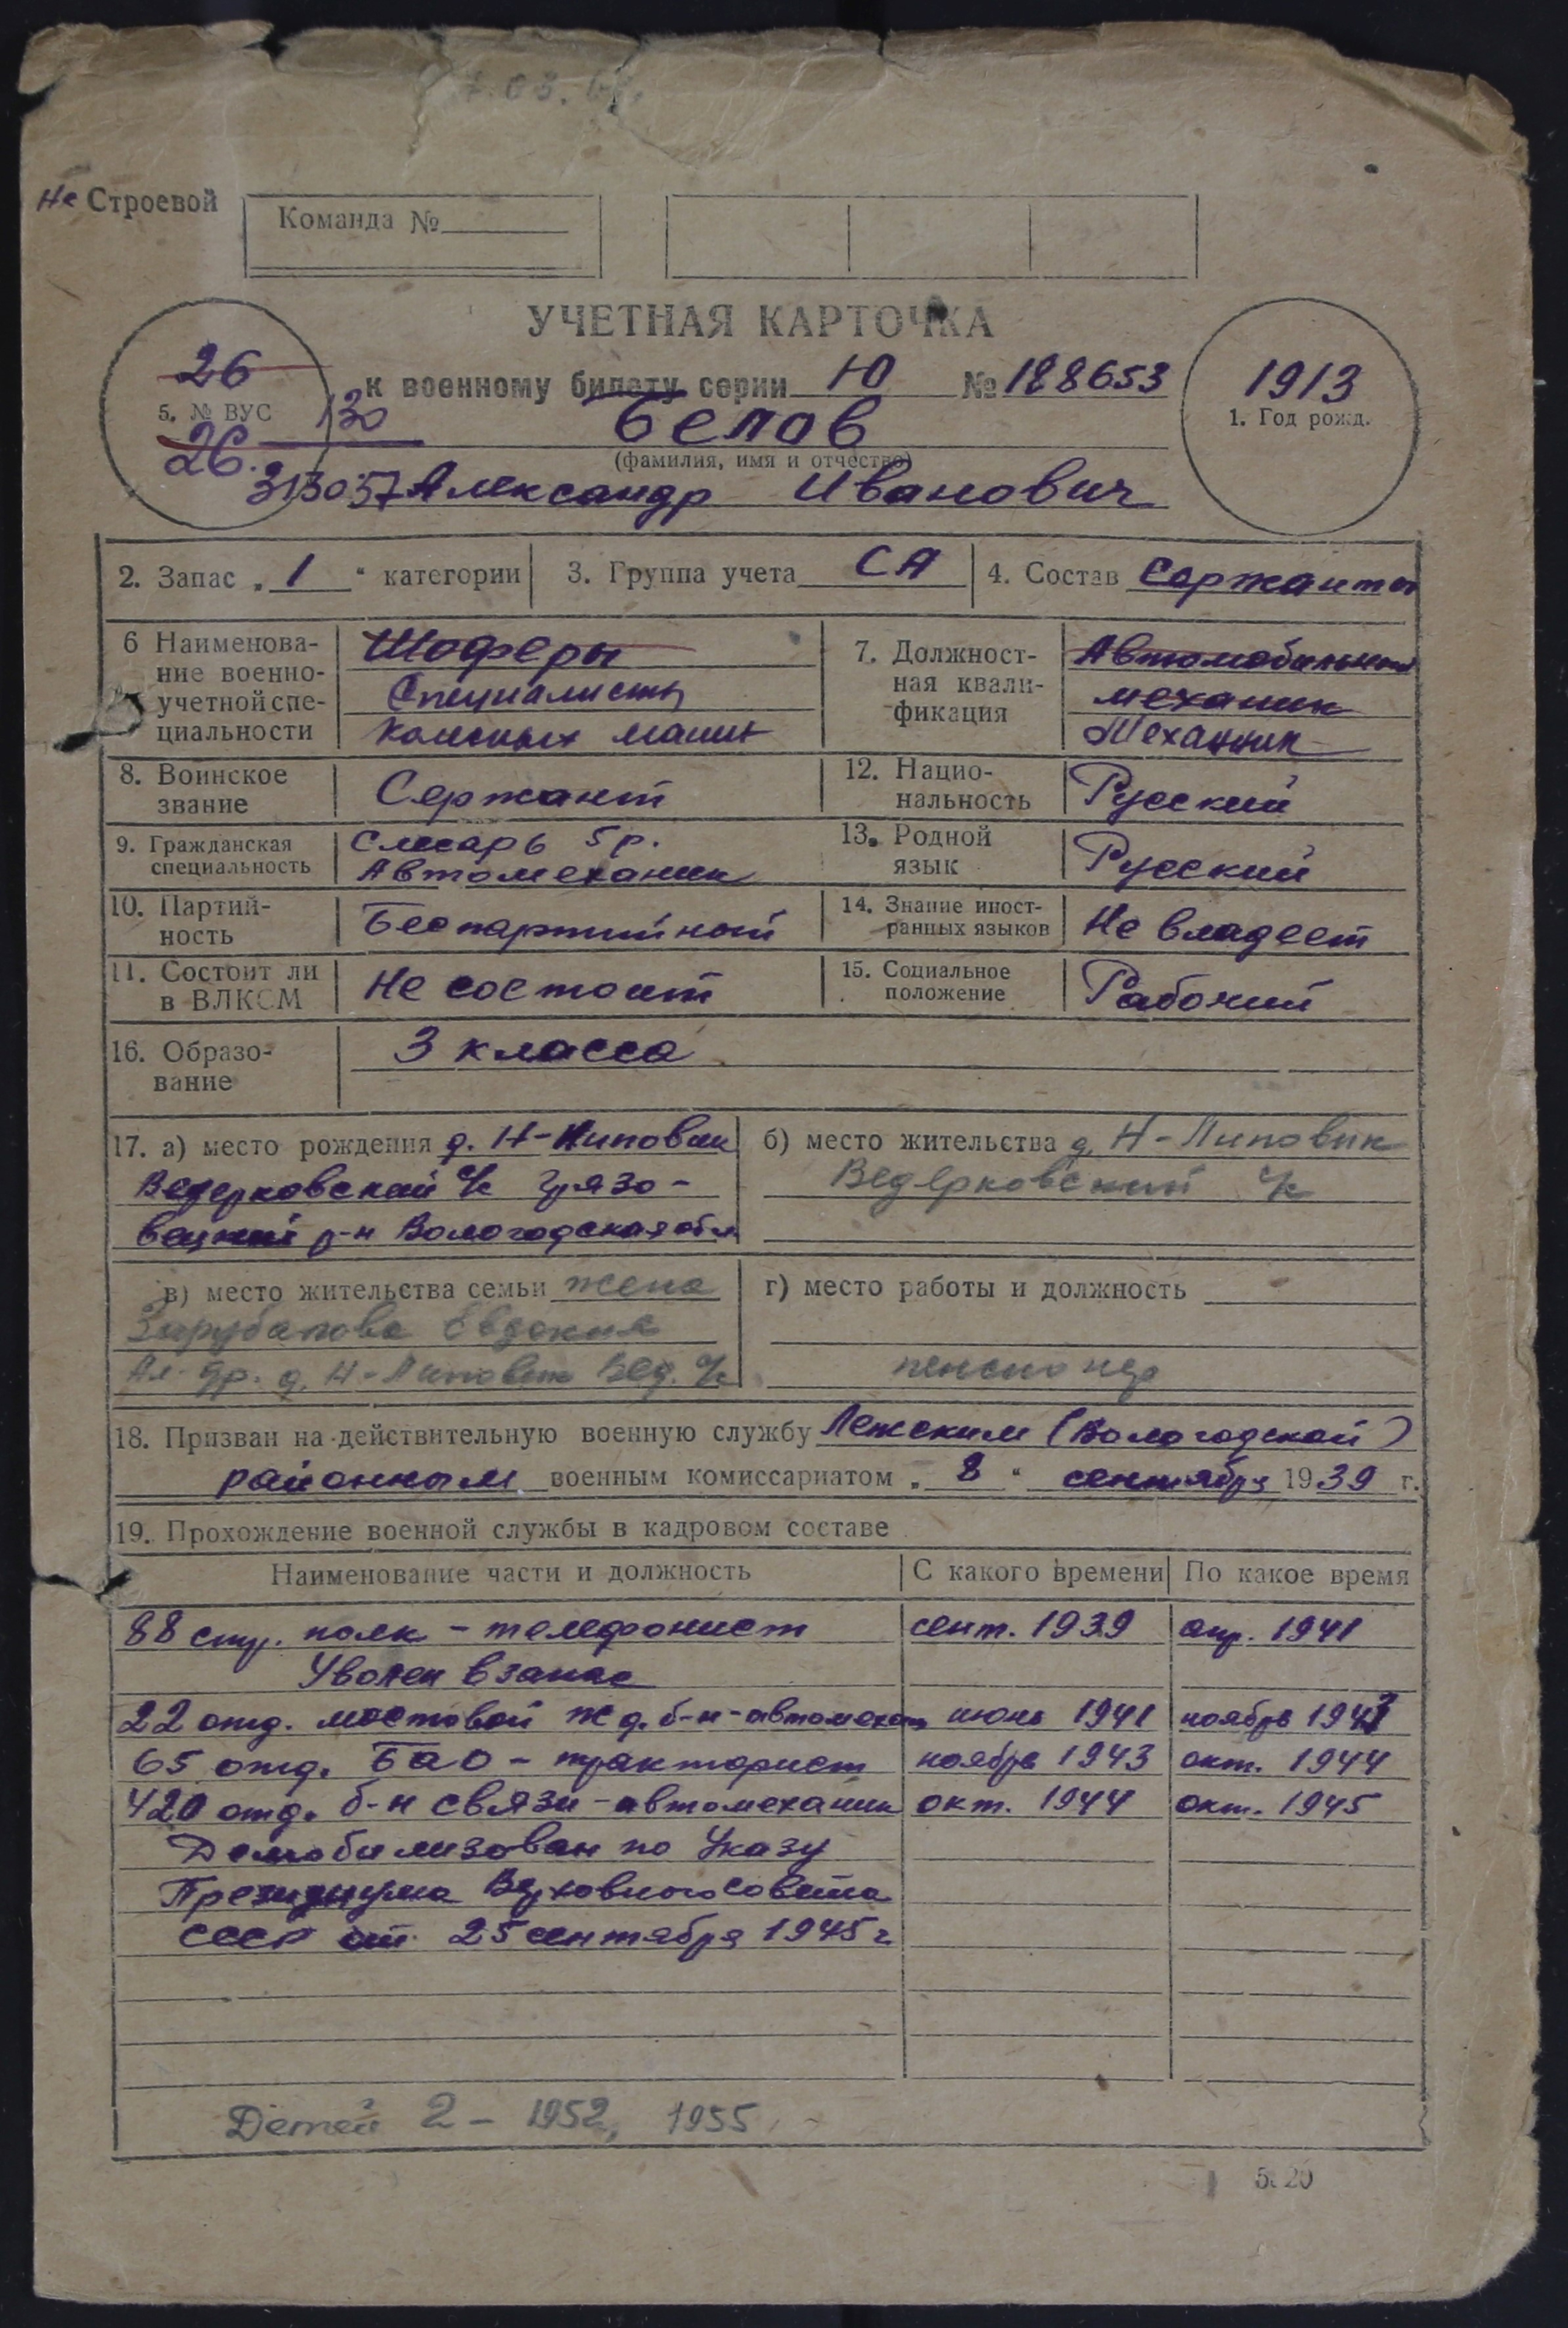 Не Строевой
Команда №
УЧЕТНАЯ КАРТОЧКА
к военному билету серии Ю № 188653
26
5. № ВУС
130
26.
313057
1913
1. Год рожд.
Белов
(фамилия, имя и отчество)
Александр Иванович
2. Запас „ 1 “ категории
3. Группа учета СА
4. Состав Сержанты
6 Наименова-
ние военно-
учетной спе-
циальности
Шоферы
Специалисты
7. Должност-
ная квали-
фикация
Автомобильный
механик
Механик
8. Воинское
звание
Сержант
12. Нацио-
нальность
Русский
9. Гражданская
специальность
Слесарь 5 р.
Автомеханик
13. Родной
язык
Русский
10. Партий-
ность
Беспартийный
14. Знание иност-
ранных языков
Не владеет
11. Состоит ли
в ВЛКСМ
Не состоит
15. Социальное
положение
Рабочий
16. Образо-
вание
3 класса
17. а) место рождения д. Н-Липовик
Ведерковский с/с Грязо-
вецкий р-н Вологодская обл
б) место жительства д. Н-Липовик
Ведерковский с/с
в) место жительства семьи жена
Евдокия
Ал-др. д. Н-Липовик Вед. с/с
г) место работы и должность
пенсионер
18. Призван на действительную военную службу Лежским (Вологодской)
районным военным комиссариатом „ 8 “ сентября 1939 г.
19. Прохождение военной службы в кадровом составе
Наименование части и должность С какого времени По какое время
88 стр. полк - телефонист сент. 1939 апр. 1941
Уволен в запас
22 отд. мостовой ж д. б-н - автомехан июнь 1941 ноябрь 1943
65 отд. БАО - тракторист ноябрь 1943 окт. 1944
420 отд. б-н связи - автомеханик окт. 1944 окт. 1945
Демобилизован по Указу
Президиума Верховного Совета
СССР от 25 сентября 1945 г
Детей 2 - 1952, 1955